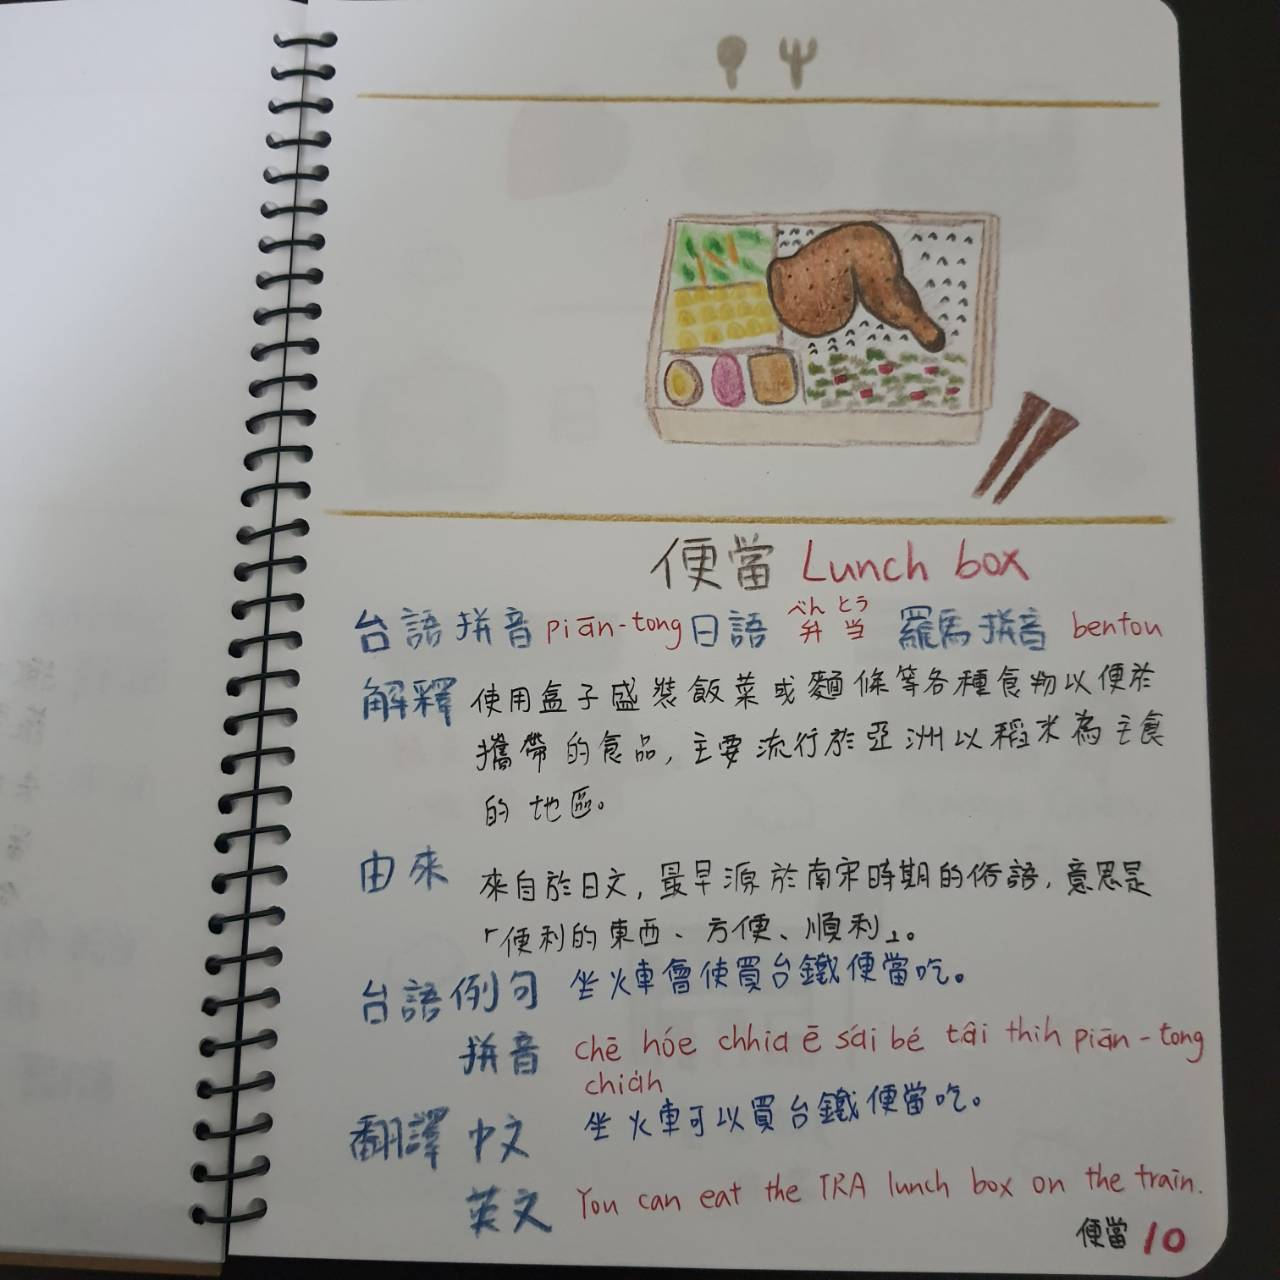 便當 Lunch box
台語拼音 piān-tong 日語 べん とう 弁当 羅馬拼音 bentou
解釋 使用盒子盛裝飯菜或麵條等各種食物以便於
攜帶的食品,主要流行於亞洲以稻米為主食
的地區。
由來 來自於日文,最早源於南宋時期的俗語,意思是
「便利的東西、方便、順利」。
台語例句 坐火車會使買台鐵便當吃。
拼音 chē hóe chhia ē sái bé tâi thih piān-tong
chia̍h
翻譯 中文 坐火車可以買台鐵便當吃。
英文 You can eat the TRA lunch box on the train.
便當 10